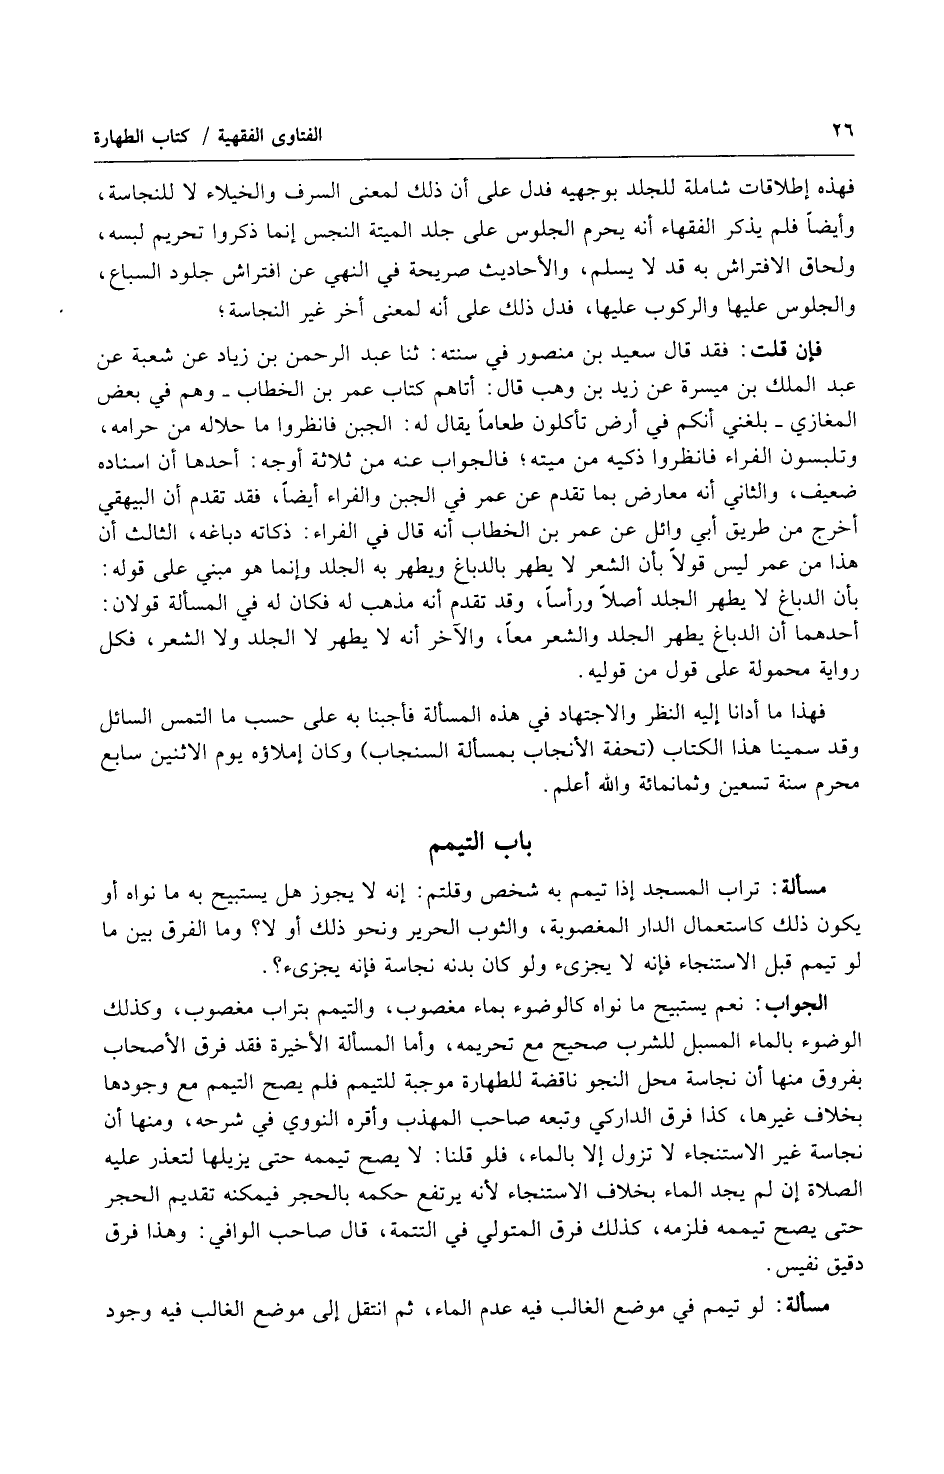 ٢٦ الفتاوى الفقهية / كتاب الطهارة
فهذه إطلاقات شاملة للجلد بوجهيه فدل على أن ذلك لمعنى السرف والخيلاء لا للنجاسة،
وأيضاً فلم يذكر الفقهاء أنه يحرم الجلوس على جلد الميتة النجس إنما ذكروا تحريم لبسه،
ولحاق الافتراش به قد لا يسلم، والأحاديث صريحة في النهي عن افتراش جلود السباع،
والجلوس عليها والركوب عليها، فدل ذلك على أنه لمعنى أخر غير النجاسة؛
فإن قلت: فقد قال سعيد بن منصور في سننه: ثنا عبد الرحمن بن زياد عن شعبة عن
عبد الملك بن ميسرة عن زيد بن وهب قال: أتاهم كتاب عمر بن الخطاب ـ وهم في بعض
المغازي ـ بلغني أنكم في أرض تأكلون طعاماً يقال له: الجبن فانظروا ما حلاله من حرامه،
وتلبسون الفراء فانظروا ذكيه من ميته؛ فالجواب عنه من ثلاثة أوجه: أحدها أن اسناده
ضعيف، والثاني أنه معارض بما تقدم عن عمر في الجبن والفراء أيضاً، فقد تقدم أن البيهقي
أخرج من طريق أبي وائل عن عمر بن الخطاب أنه قال في الفراء: ذكاته دباغه، الثالث أن
هذا من عمر ليس قولاً بأن الشعر لا يطهر بالدباغ ويطهر به الجلد وإنما هو مبني على قوله:
بأن الدباغ لا يطهر الجلد أصلاً ورأساً، وقد تقدم أنه مذهب له فكان له في المسألة قولان:
أحدهما أن الدباغ يطهر الجلد والشعر معاً، والآخر أنه لا يطهر لا الجلد ولا الشعر، فكل
رواية محمولة على قول من قوليه.
فهذا ما أدانا إليه النظر والاجتهاد في هذه المسألة فأجبنا به على حسب ما التمس السائل
وقد سمينا هذا الكتاب (تحفة الأنجاب بمسألة السنجاب) وكان إملاؤه يوم الاثنين سابع
محرم سنة تسعين وثمانمائة والله أعلم.
باب التيمم
مسألة: تراب المسجد إذا تيمم به شخص وقلتم: إنه لا يجوز هل يستبيح به ما نواه أو
يكون ذلك كاستعمال الدار المغصوبة، والثوب الحرير ونحو ذلك أو لا؟ وما الفرق بين ما
لو تيمم قبل الاستنجاء فإنه لا يجزىء ولو كان بدنه نجاسة فإنه يجزىء؟.
الجواب: نعم يستبيح ما نواه كالوضوء بماء مغصوب، والتيمم بتراب مغصوب، وكذلك
الوضوء بالماء المسبل للشرب صحيح مع تحريمه، وأما المسألة الأخيرة فقد فرق الأصحاب
بفروق منها أن نجاسة محل النجو ناقضة للطهارة موجبة للتيمم فلم يصح التيمم مع وجودها
بخلاف غيرها، كذا فرق الداركي وتبعه صاحب المهذب وأقره النووي في شرحه، ومنها أن
نجاسة غير الاستنجاء لا تزول إلا بالماء، فلو قلنا: لا يصح تيممه حتى يزيلها لتعذر عليه
الصلاة إن لم يجد الماء بخلاف الاستنجاء لأنه يرتفع حكمه بالحجر فيمكنه تقديم الحجر
حتى يصح تيممه فلزمه، كذلك فرق المتولي في التتمة، قال صاحب الوافي: وهذا فرق
دقيق نفيس.
مسألة: لو تيمم في موضع الغالب فيه عدم الماء، ثم انتقل إلى موضع الغالب فيه وجود